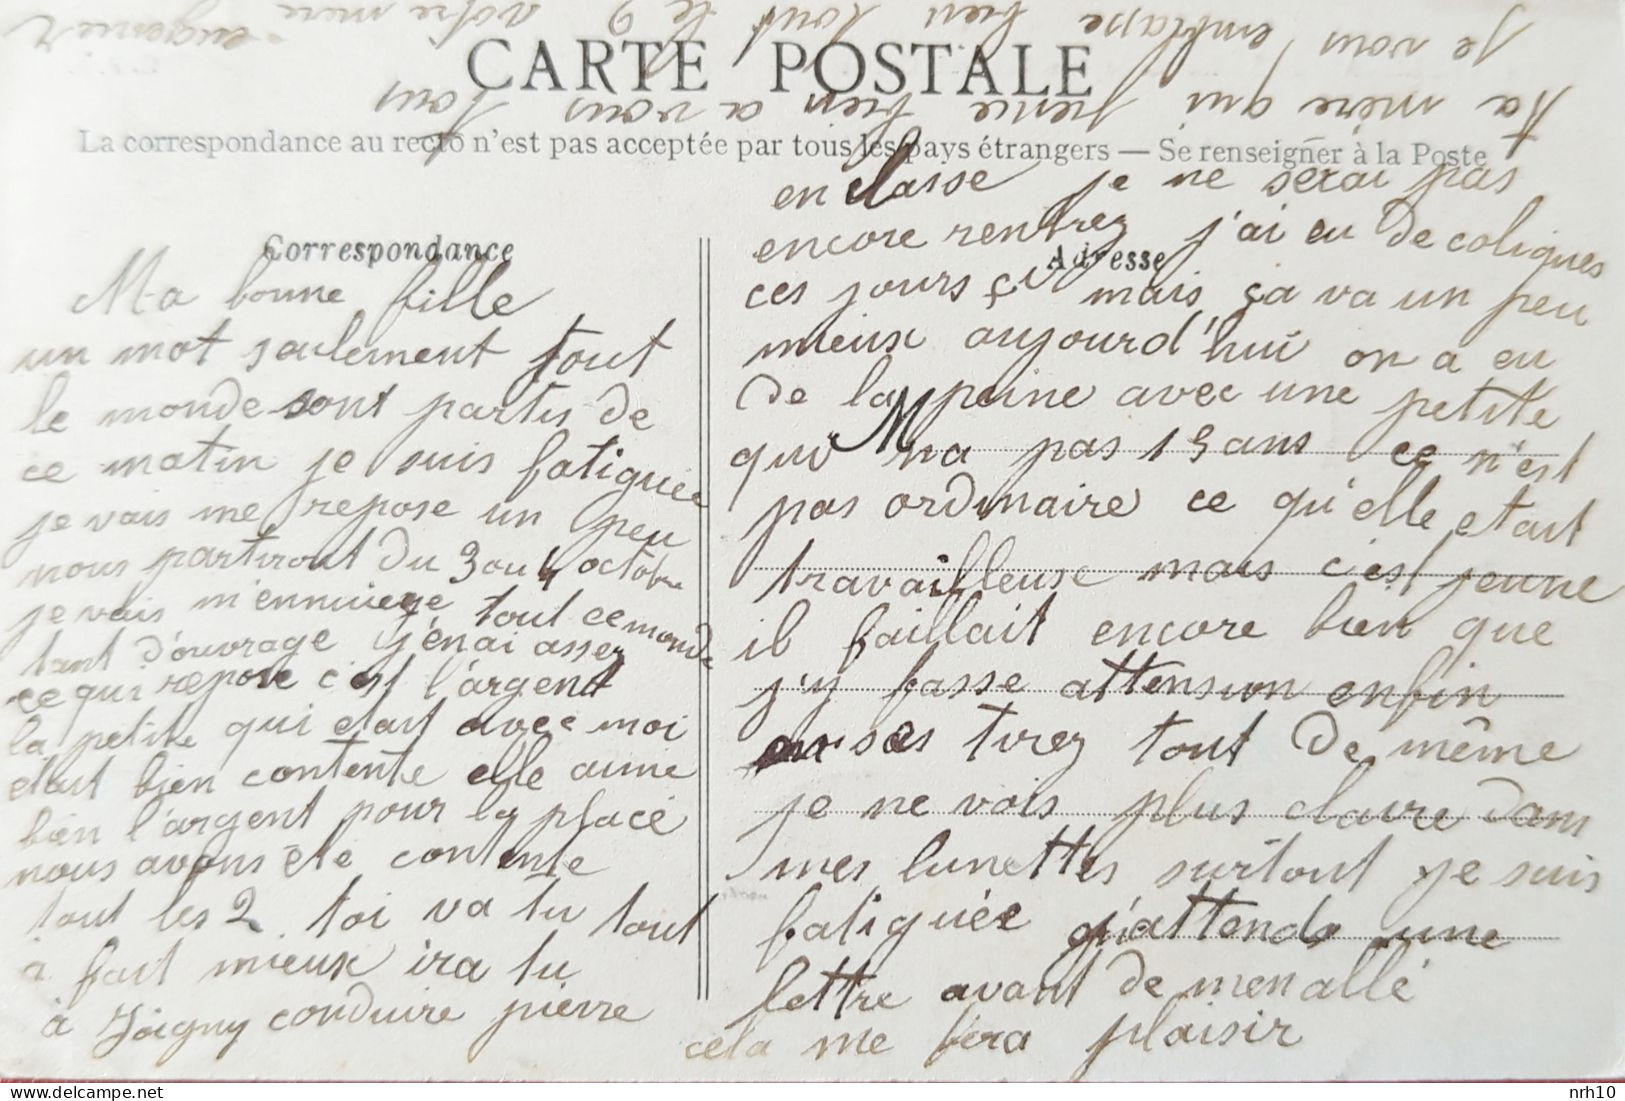 CARTE POSTALE
La correspondance au recto n'est pas acceptée par tous les pays étrangers — Se renseigner à la Poste
Correspondance
Ma bonne fille
un mot seulement tout
le monde sont partis de
ce matin je suis fatiguée
je vais me repose un peu
nous partiront du 3 ou 4 octobre
je vais m'ennuiege tout ce monde
tant d'ouvrage j'enai assez
ce qui repose c'est l'argent
la petite qui etait avec moi
etait bien contente elle aime
bien l'argent pour la placé
nous avons été contente
tout les 2 toi va tu tout
à fait mieux ira tu
à Joigny conduire pierre
Adresse
en classe je ne serai pas
encore rentrez j'ai eu de coliques
ces jours çi mais ça va un peu
mieux aujourd'hui on a eu
de la peine avec une petite
qui na pas 15 ans ce n'est
pas ordinaire ce qu'elle etait
travailleuse mais c'est jeune
il faillait encore bien que
j'y fasse attension enfin
ses tirez tout de même
je ne vois plus claire dans
mes lunettes surtout je suis
fatiguée j'attends une
lettre avant de menallé
cela me fera plaisir
ta mère qui pense bien a vous tous
je vous embrasse bien tous le 9 votre mère
eugenie
nrh10